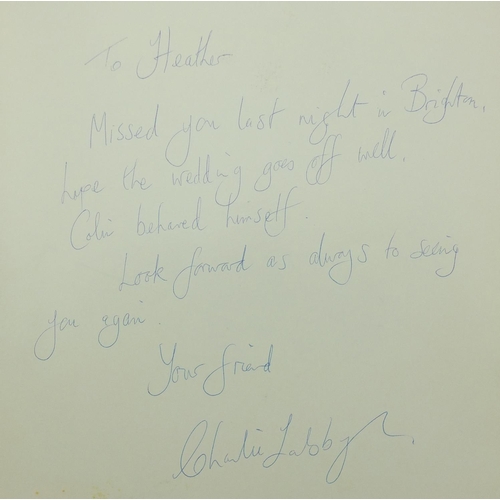 To Heather
Missed you last night in Brighton,
hope the wedding goes off well.
Colin behaved himself.
Look forward as always to seeing
you again.
Your friend
Charlie